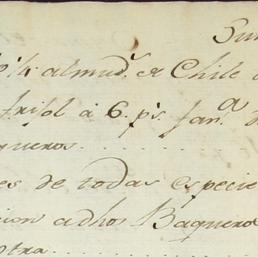 Sum
¼ almud. de Chile
frisol à 6. ps. fan.a d
queros
es de todas especie
cion adhos Baquero
otra